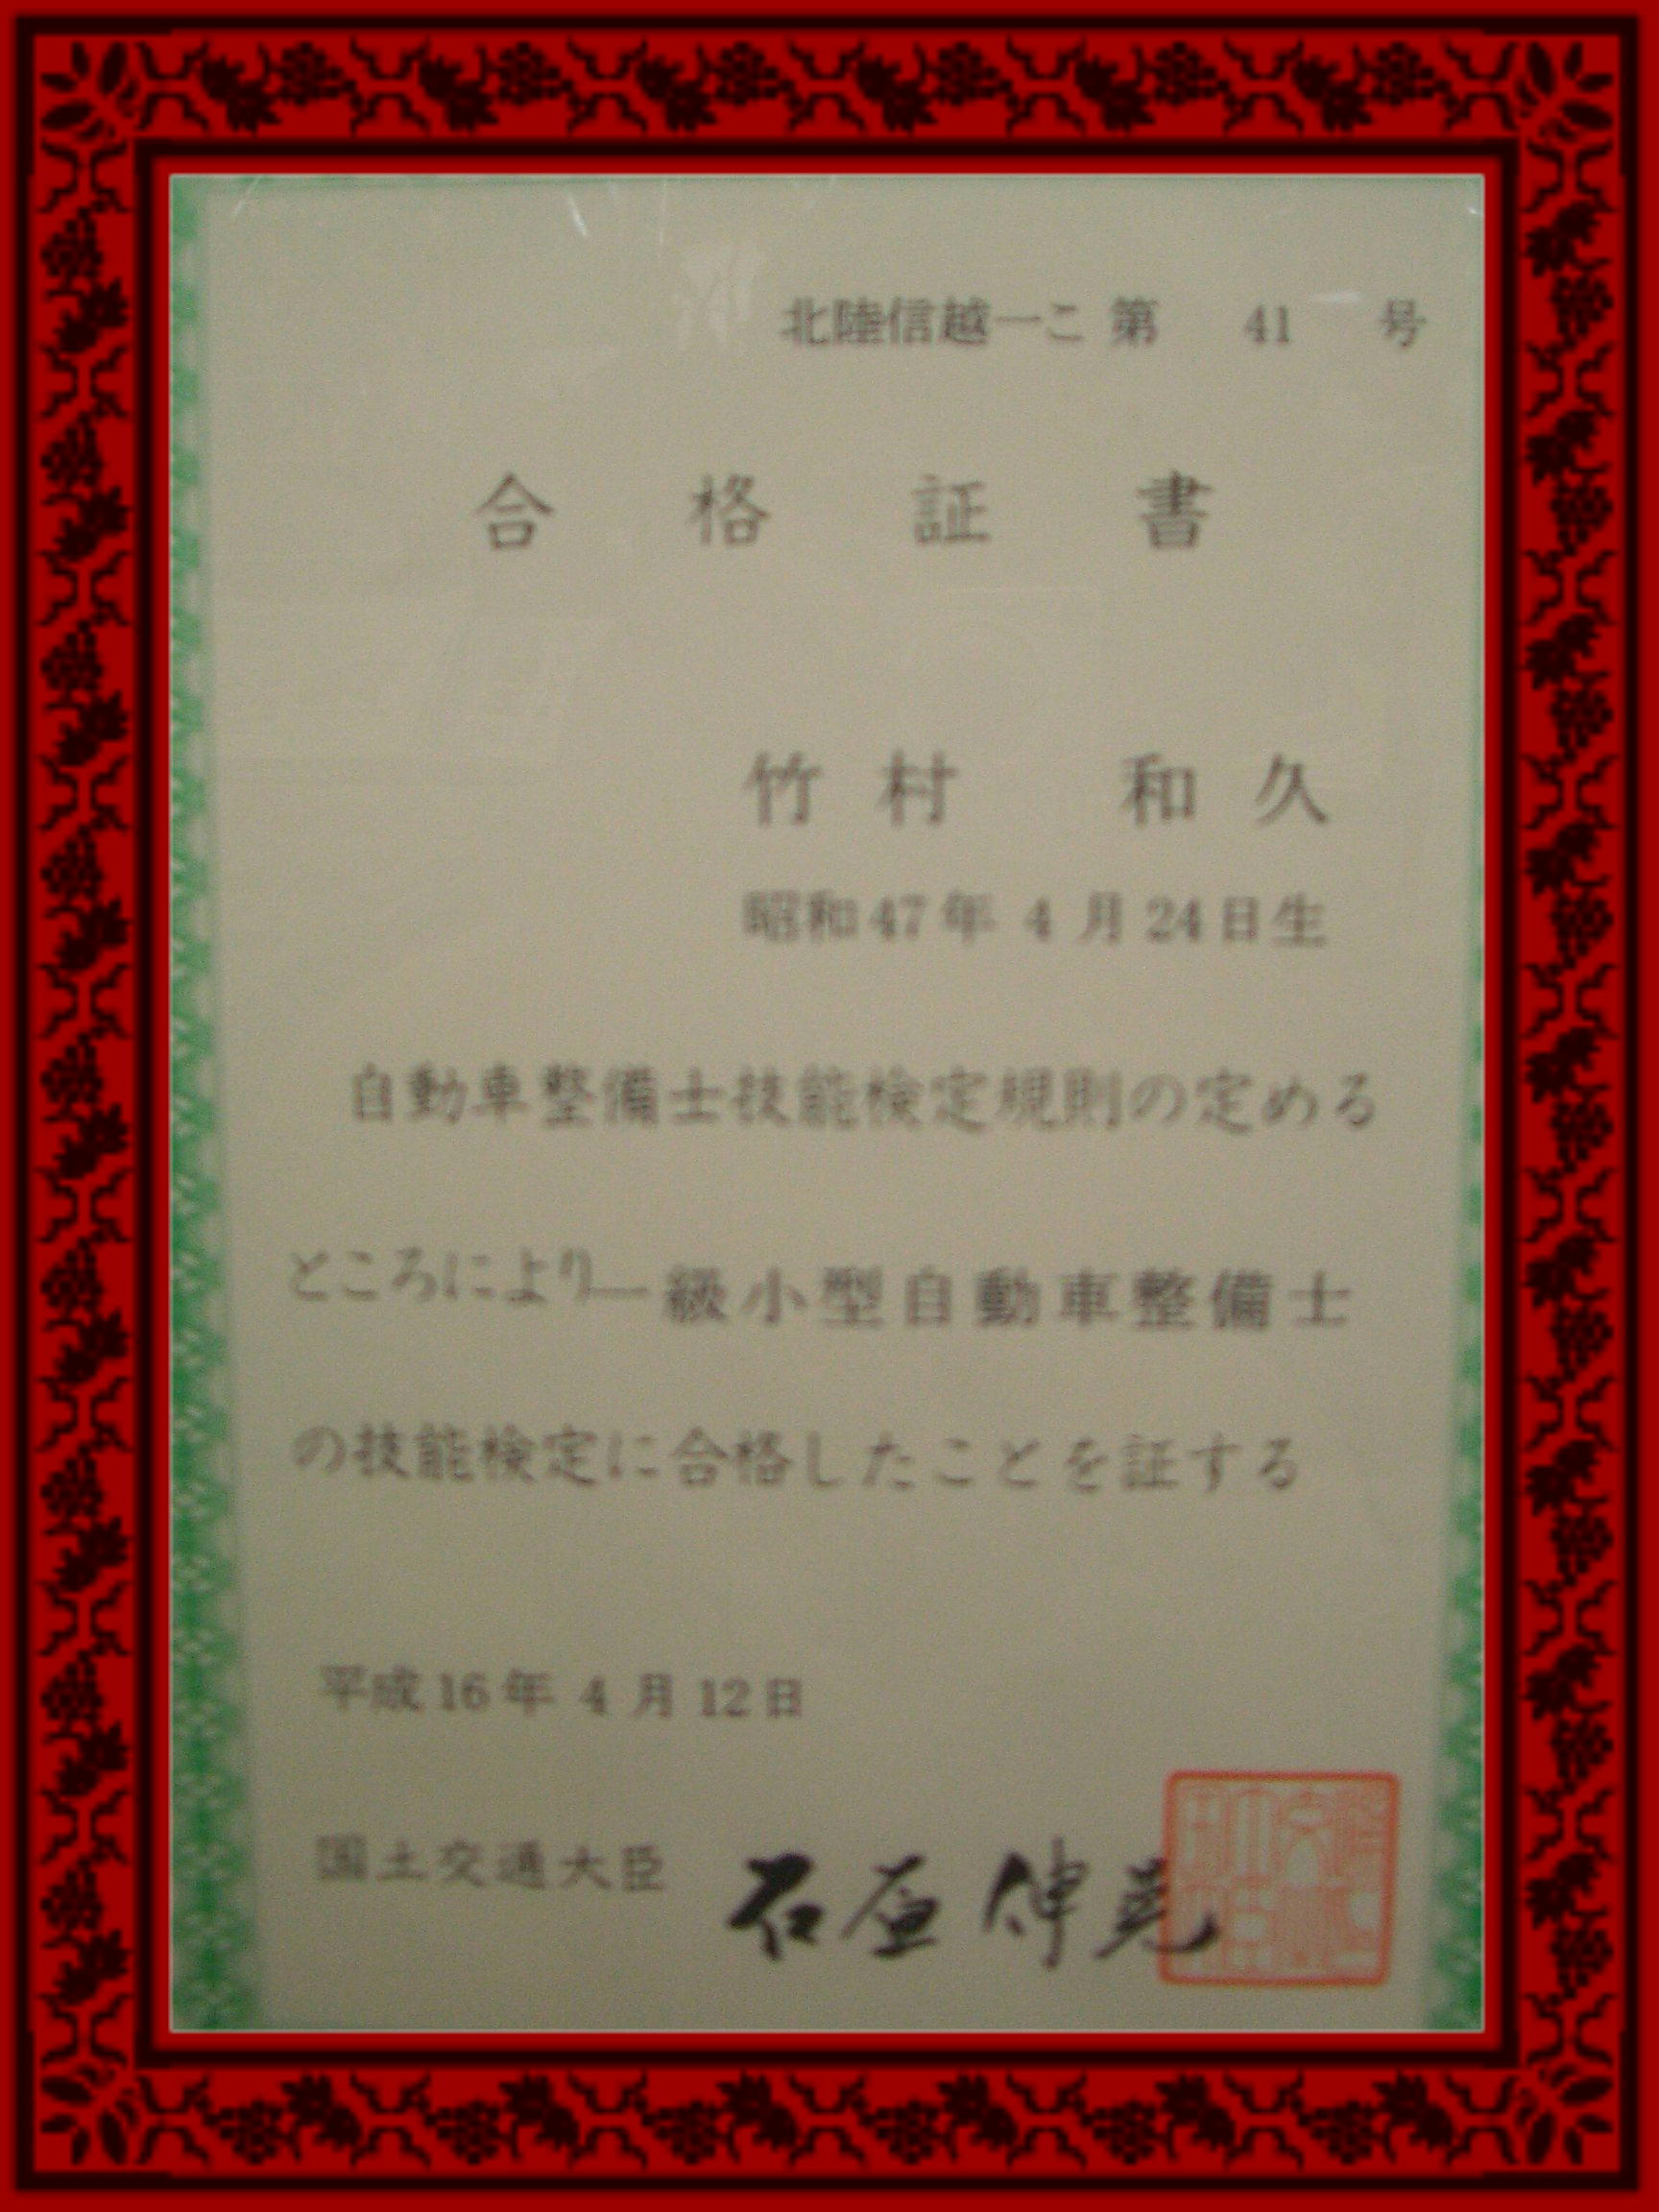 北陸信越一こ 第 41 号
合格証書
竹村 和久
昭和47年4月24日生
自動車整備士技能検定規則の定める
ところにより一級小型自動車整備士
の技能検定に合格したことを証する
平成16年4月12日
国土交通大臣 石原伸晃